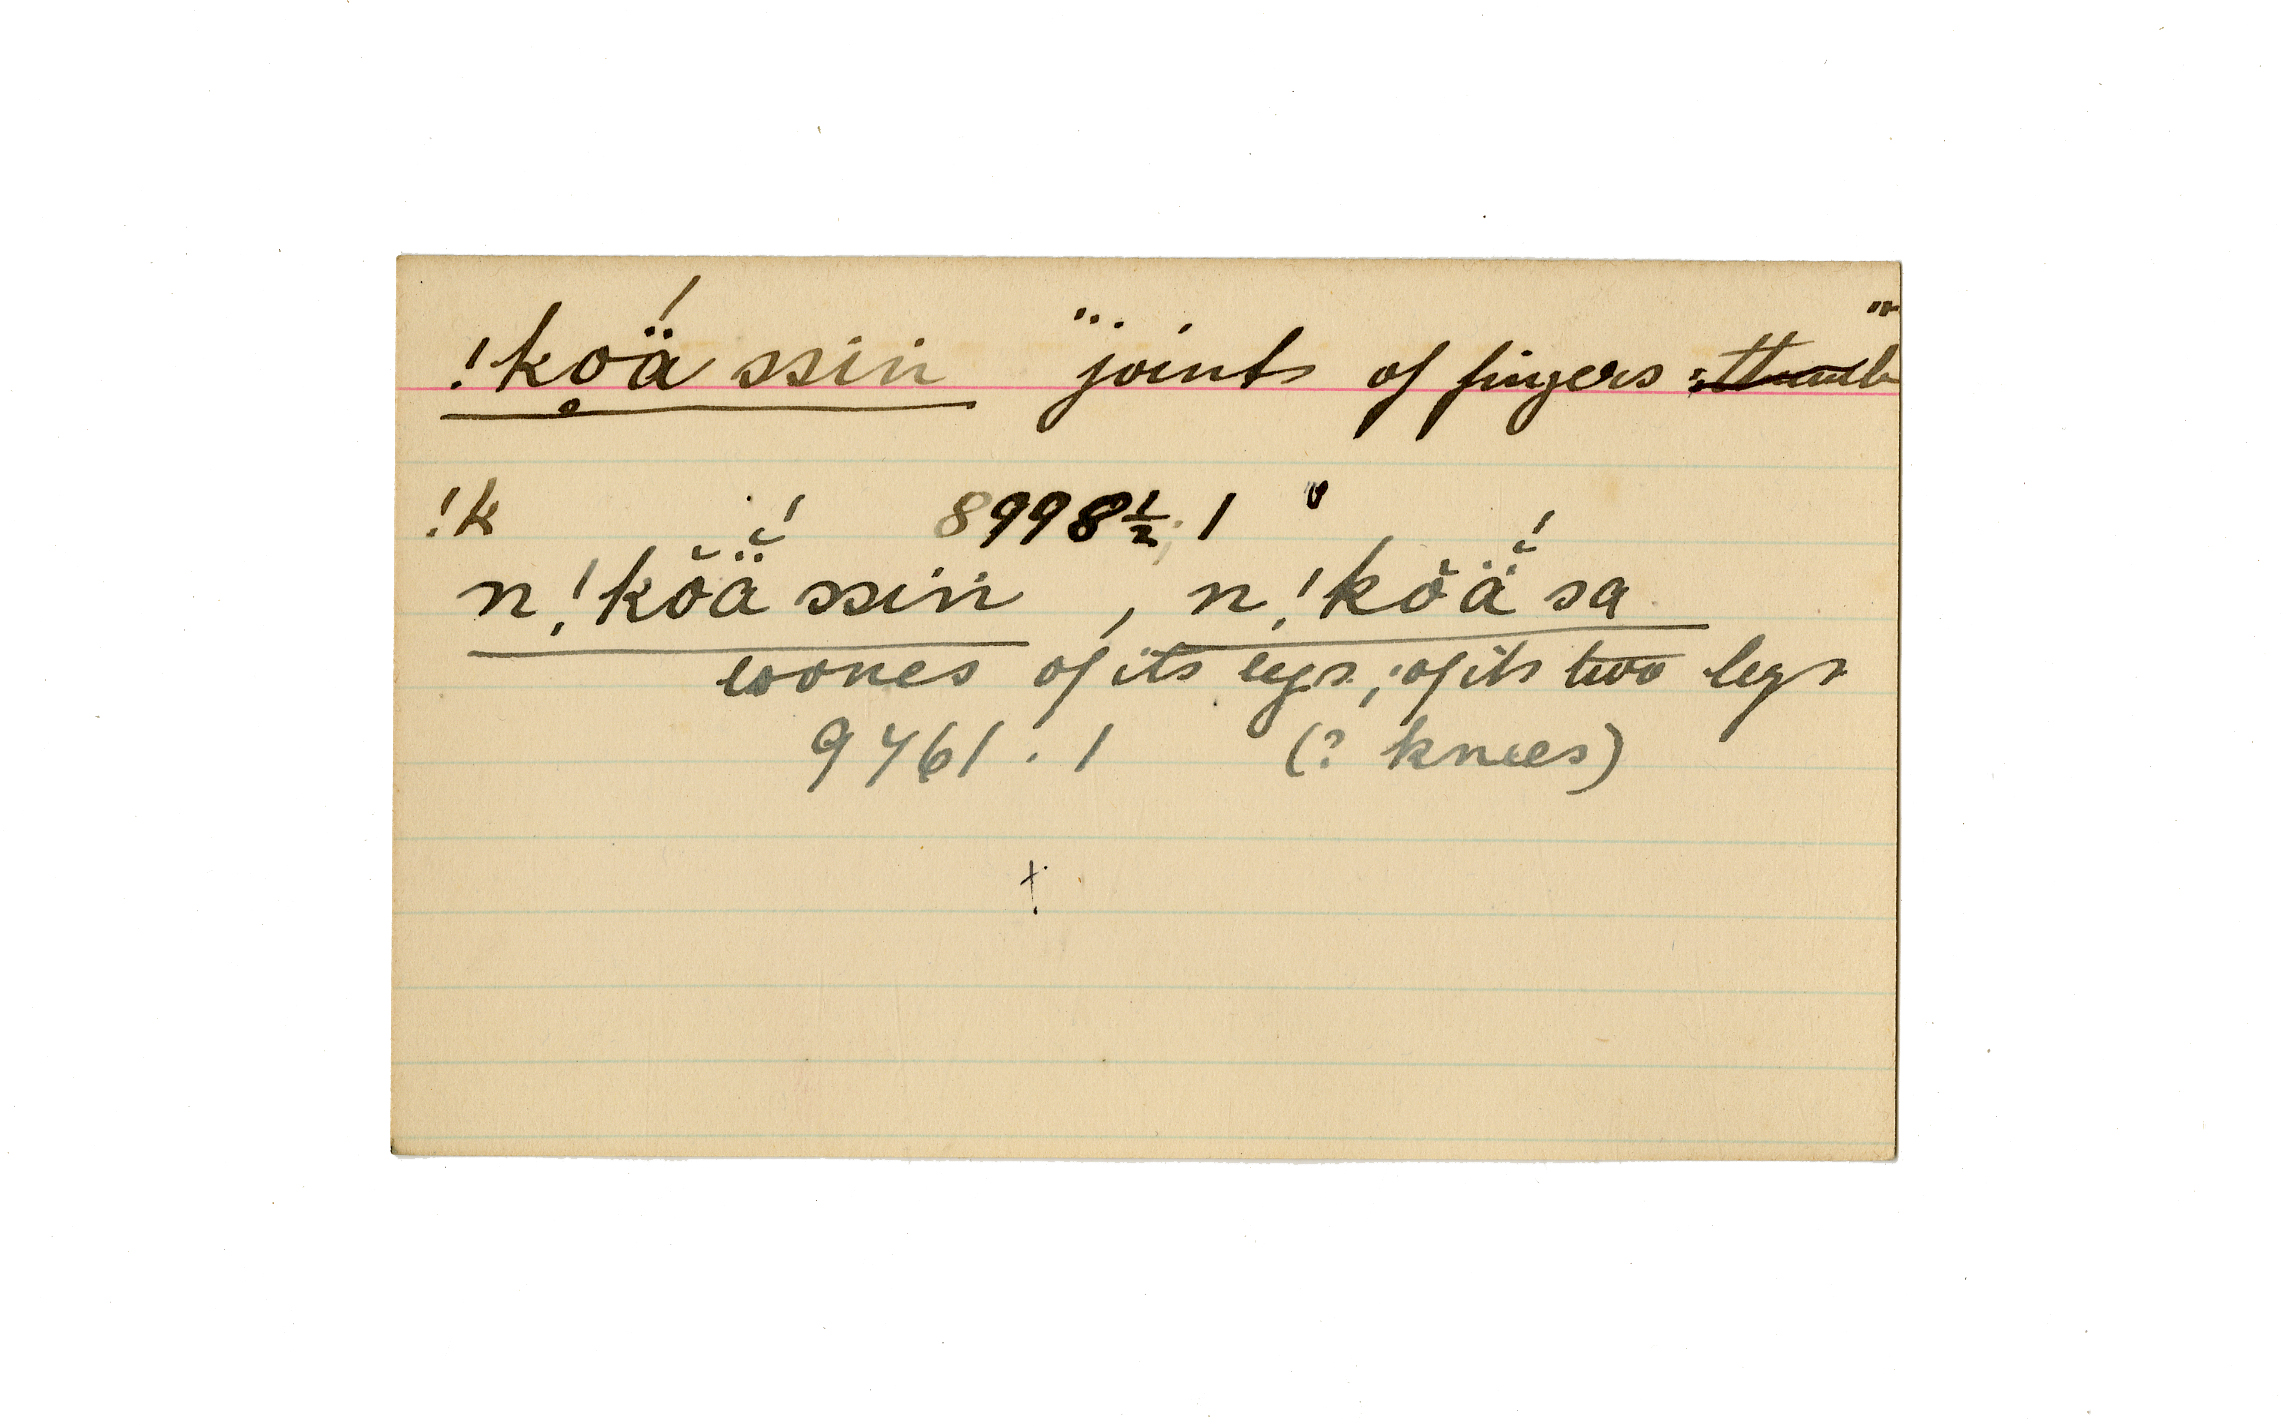 !kọä́ ssin "joints of fingers thumb"
!k 8998½.1
n!kŏä̆́ ssin , n!kŏä̆́ sa
bones of its legs; of its two legs
9461.1 (? knees)